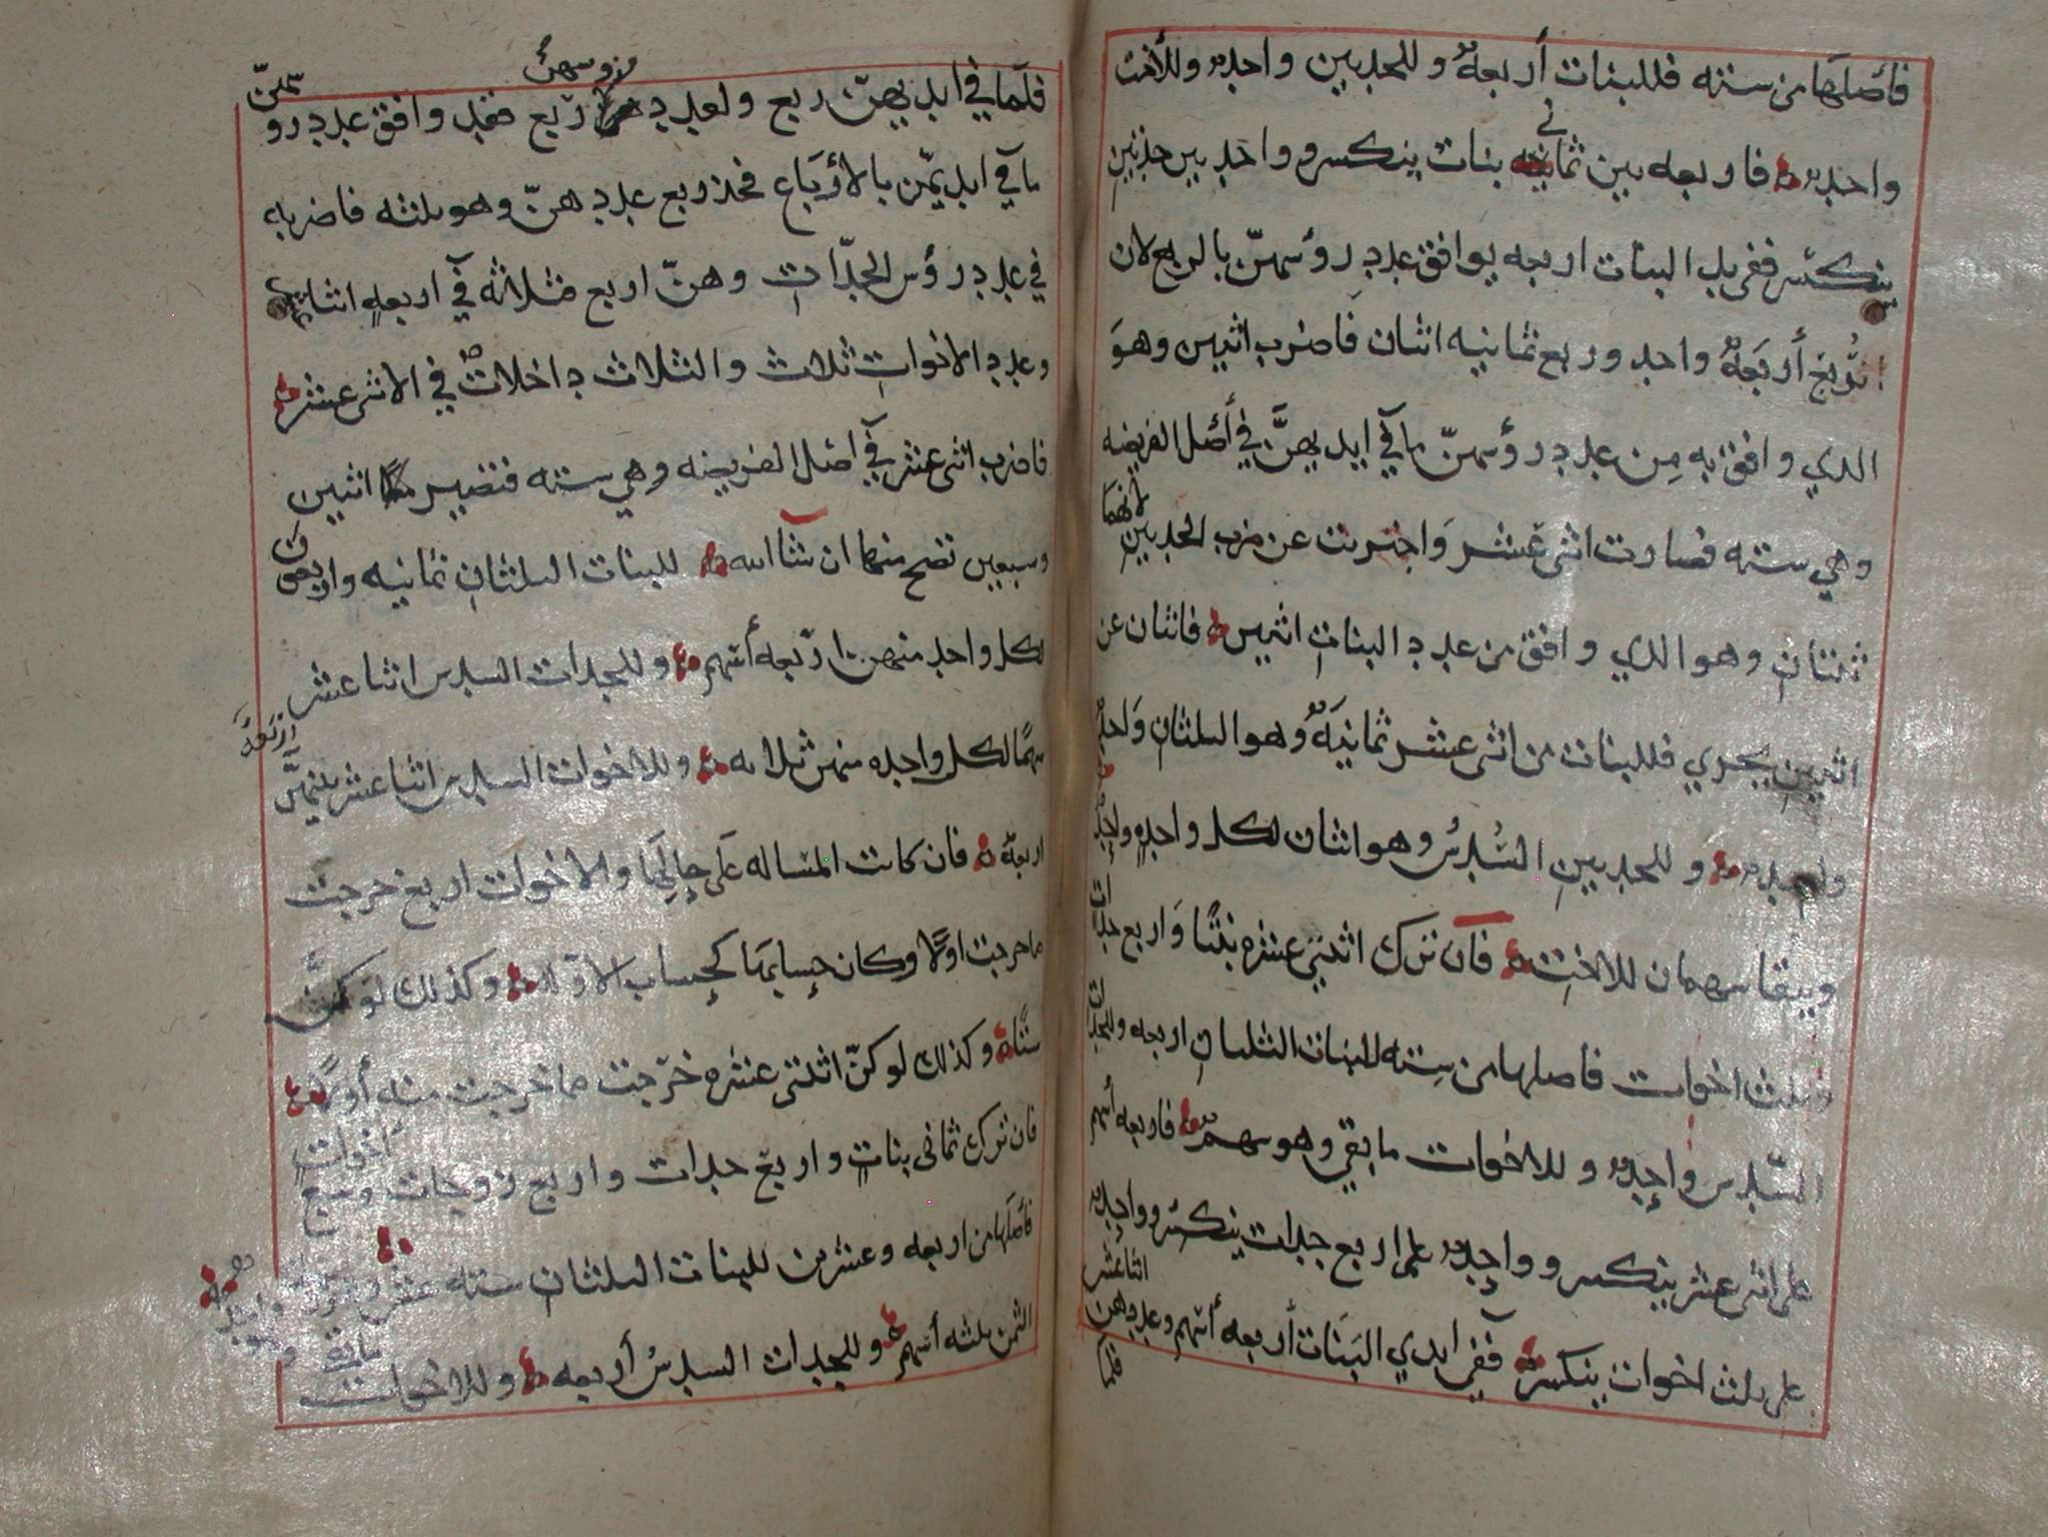 فأصلها من سته فللبنات أربعهٌ وللجدتين واحدهٌ وللأخت
واحدهٌ فاربعه بين ثماني بنات ينكسر وواحد بين جدتين
ينكسر ففي يد البنات اربعه يوافق عدد رؤسهنّ بالربع لان
رُبع أربَعهٌ واحد وربع ثمانيه اثنان فاضرب اثنين وهوَ
الدي وافق به مِن عدد رؤسهنّ ما في ايديهنَّ في أصل الفريضه
وهي سته فصارت اثنى عَشر وَاجتريت عن ضرب الجدتين لانهما
ثنتانِ وهو الدي وافق من عدد البناتِ اثنين فاثنان عن
اثنين يجري فللبنات من اثنى عشر ثمانيَهٌ وهو الثلثانِ وَاحدهٌ
واحدهٌ وللجدتينِ السُدسُ وهو اثنان لكل واحدهٍ واحدهٌ
ويبقا سهمان للاختِ فَان ترك اثنتى عشره بنتًا وَاربع جدات
وثلث اخوات فاصلها من سِته للبنات الثلثانِ اربعه وللجدات
السّدس واحِدهٌ وللاخوات ما بقي وهو سهمٌ فاربعه أسهم
على اثنى عشر ينكسر وواحِدهٌ على اربع جدات ينكسر وواحِدهٌ
على ثلث اخوات ينكسر فَفي ايدي البَنَات أربعه أسهم وعددهن اثنا عشر
فلما
فلمّا في ايديهنّ ربع ولعدد رؤسهنّ رُبع فقد وافق عدد روسهنّ
ما في ايديهّن بالأربَاع فخذ ربع عددهنّ وهو ثلثه فاضربه
في عدد رؤس الجدّاتِ وهنّ اربع فثلاثه في اربعهٍ اثنا عشر
وعدد الاخواتِ ثلاث والثلاث داخلاتٌ في الاثنى عشر
فاضرب اثنى عشر في اصل الفريضه وهي سته فتصير اثنين
وسبعين تصح منها ان شآ الله للبنات الثلثانِ ثمانيه واربعون
لكل واحدٍ منهن اربعه أسهم وللجدات السدس اثنا عشر
سهمًا لكل واحده منهن ثلاثه وللاخوات السدس اثنا عشر بينهنَّ اربَعَهٌ
اربعهٌ فان كانت المساله عَلى حالِهَا والاخوات اربع خرجت
ما خرجت اولًا وكان حِسابهَا كحِساب الاوّله وكذلك لو كنَّ
ستًا وكذلك لو كنّ اثنتى عشره خرَجت مما خرجت منه أولًا
فان ترك ثمانى بناتٍ واربع جدات واربع زوجات وسبع أخواتٍ
فأصلها من اربعه وعشرين للبنات الثلثانِ سته عشر
الثمن ثلثه أسهم وللجدات السدسُ أربعه وللاخوات مابقي وهو واحد